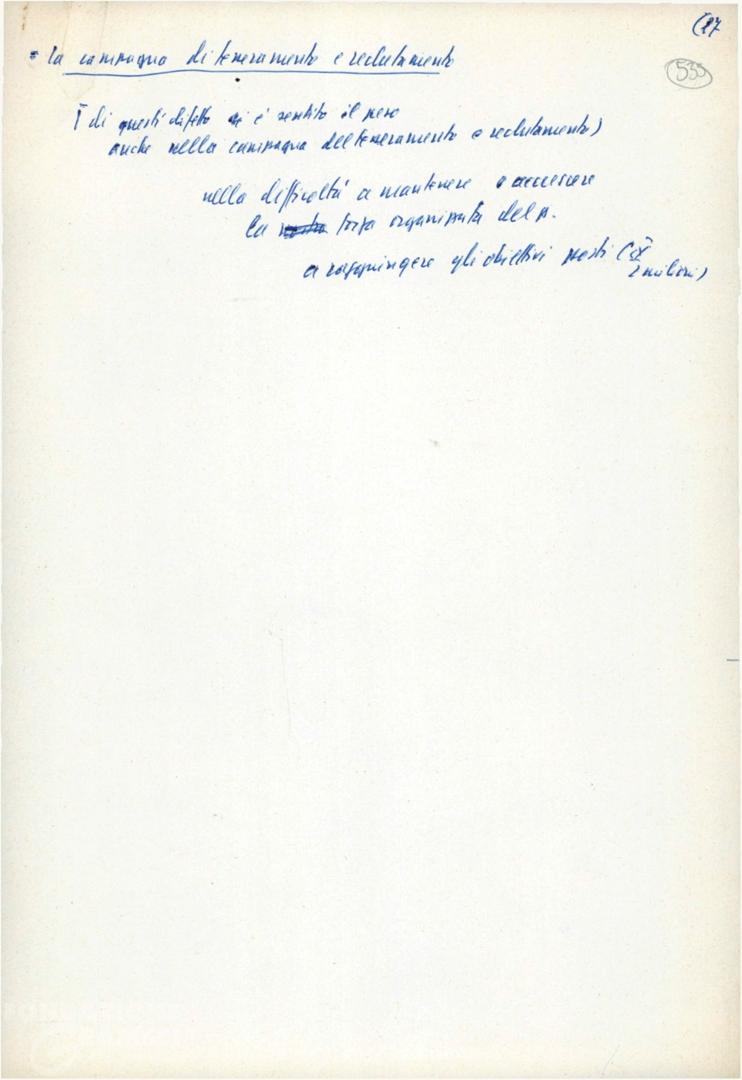 (27
535
= la campagna di tesseramento e reclutamento
I di questi difetti si è sentito il peso
anche nella campagna del tesseramento e reclutamento)
nella difficoltà a mantenere e accrescere
la nostra forza organizzata del p.
a raggiungere gli obiettivi posti (
2 milioni)